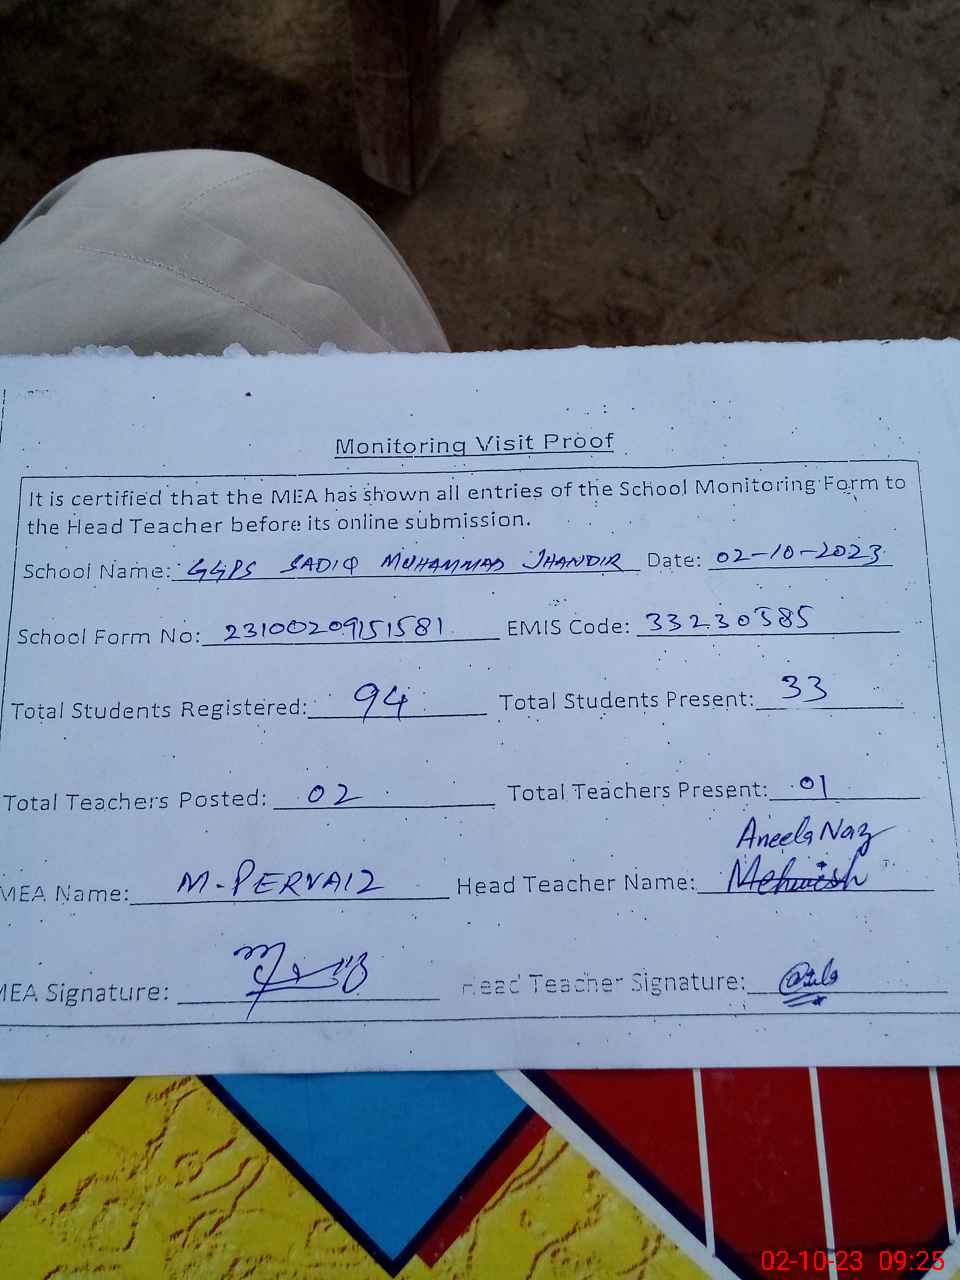 Monitoring Visit Proof
It is certified that the MEA has shown all entries of the School Monitoring Form to
the Head Teacher before its online submission.
School Name: GGPS SADIQ MUHAMMAD JHANDIR Date: 02-10-2023
School Form No: 23100209151581 EMIS Code: 33230585
Total Students Registered: 94 Total Students Present: 33
Total Teachers Posted: 02 Total Teachers Present: 01
Aneela Naz
MEA Name: M. PERVAIZ Head Teacher Name: Mehwish
MEA Signature: Head Teacher Signature:
02-10-23 09:25